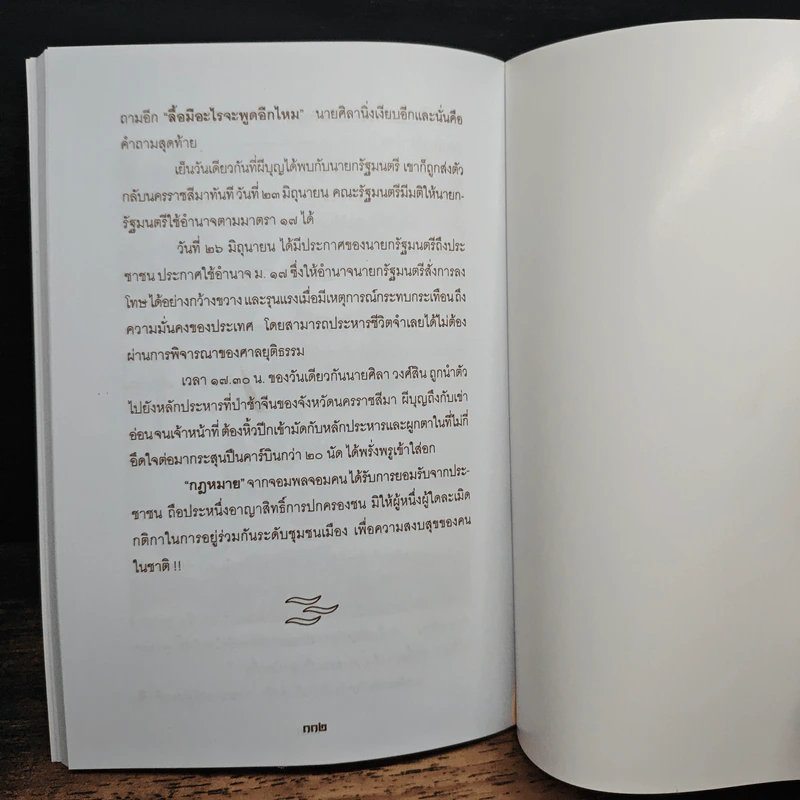 ถามอีก “ลื้อมีอะไรจะพูดอีกไหม” นายศิลานิ่งเงียบอีกและนั่นคือ
คำถามสุดท้าย
เย็นวันเดียวกันที่ผีบุญได้พบกับนายกรัฐมนตรี เขาก็ถูกส่งตัว
กลับนครราชสีมาทันที วันที่ ๒๓ มิถุนายน คณะรัฐมนตรีมีมติให้นายก-
รัฐมนตรีใช้อำนาจตามมาตรา ๑๗ ได้
วันที่ ๒๖ มิถุนายน ได้มีประกาศของนายกรัฐมนตรีถึงประ
ชาชน ประกาศใช้อำนาจ ม. ๑๗ ซึ่งให้อำนาจนายกรัฐมนตรีสั่งการลง
โทษ ได้อย่างกว้างขวาง และรุนแรงเมื่อมีเหตุการณ์กระทบกระเทือน ถึง
ความมั่นคงของประเทศ โดยสามารถประหารชีวิตจำเลยได้ไม่ต้อง
ผ่านการพิจารณาของศาลยุติธรรม
เวลา ๑๗.๓๐ น. ของวันเดียวกันนายศิลา วงศ์สิน ถูกนำตัว
ไปยังหลักประหารที่ป่าช้าจีนของจังหวัดนครราชสีมา ผีบุญถึงกับเข่า
อ่อน จนเจ้าหน้าที่ ต้องหิ้วปีกเข้ามัดกับหลักประหารและผูกตาในที่ไม่กี่
อึดใจต่อมากระสุนปืนคาร์บินกว่า ๒๐ นัด ได้พรั่งพรูเข้าใส่อก
“กฎหมาย” จากจอมพลจอมคน ได้รับการยอมรับจากประ-
ชาชน ถือประหนึ่งอาญาสิทธิ์การปกครองชน มิให้ผู้หนึ่งผู้ใดละเมิด
กติกาในการอยู่ร่วมกันระดับชุมชนเมือง เพื่อความสงบสุขของคน
ในชาติ !!
๑๑๒